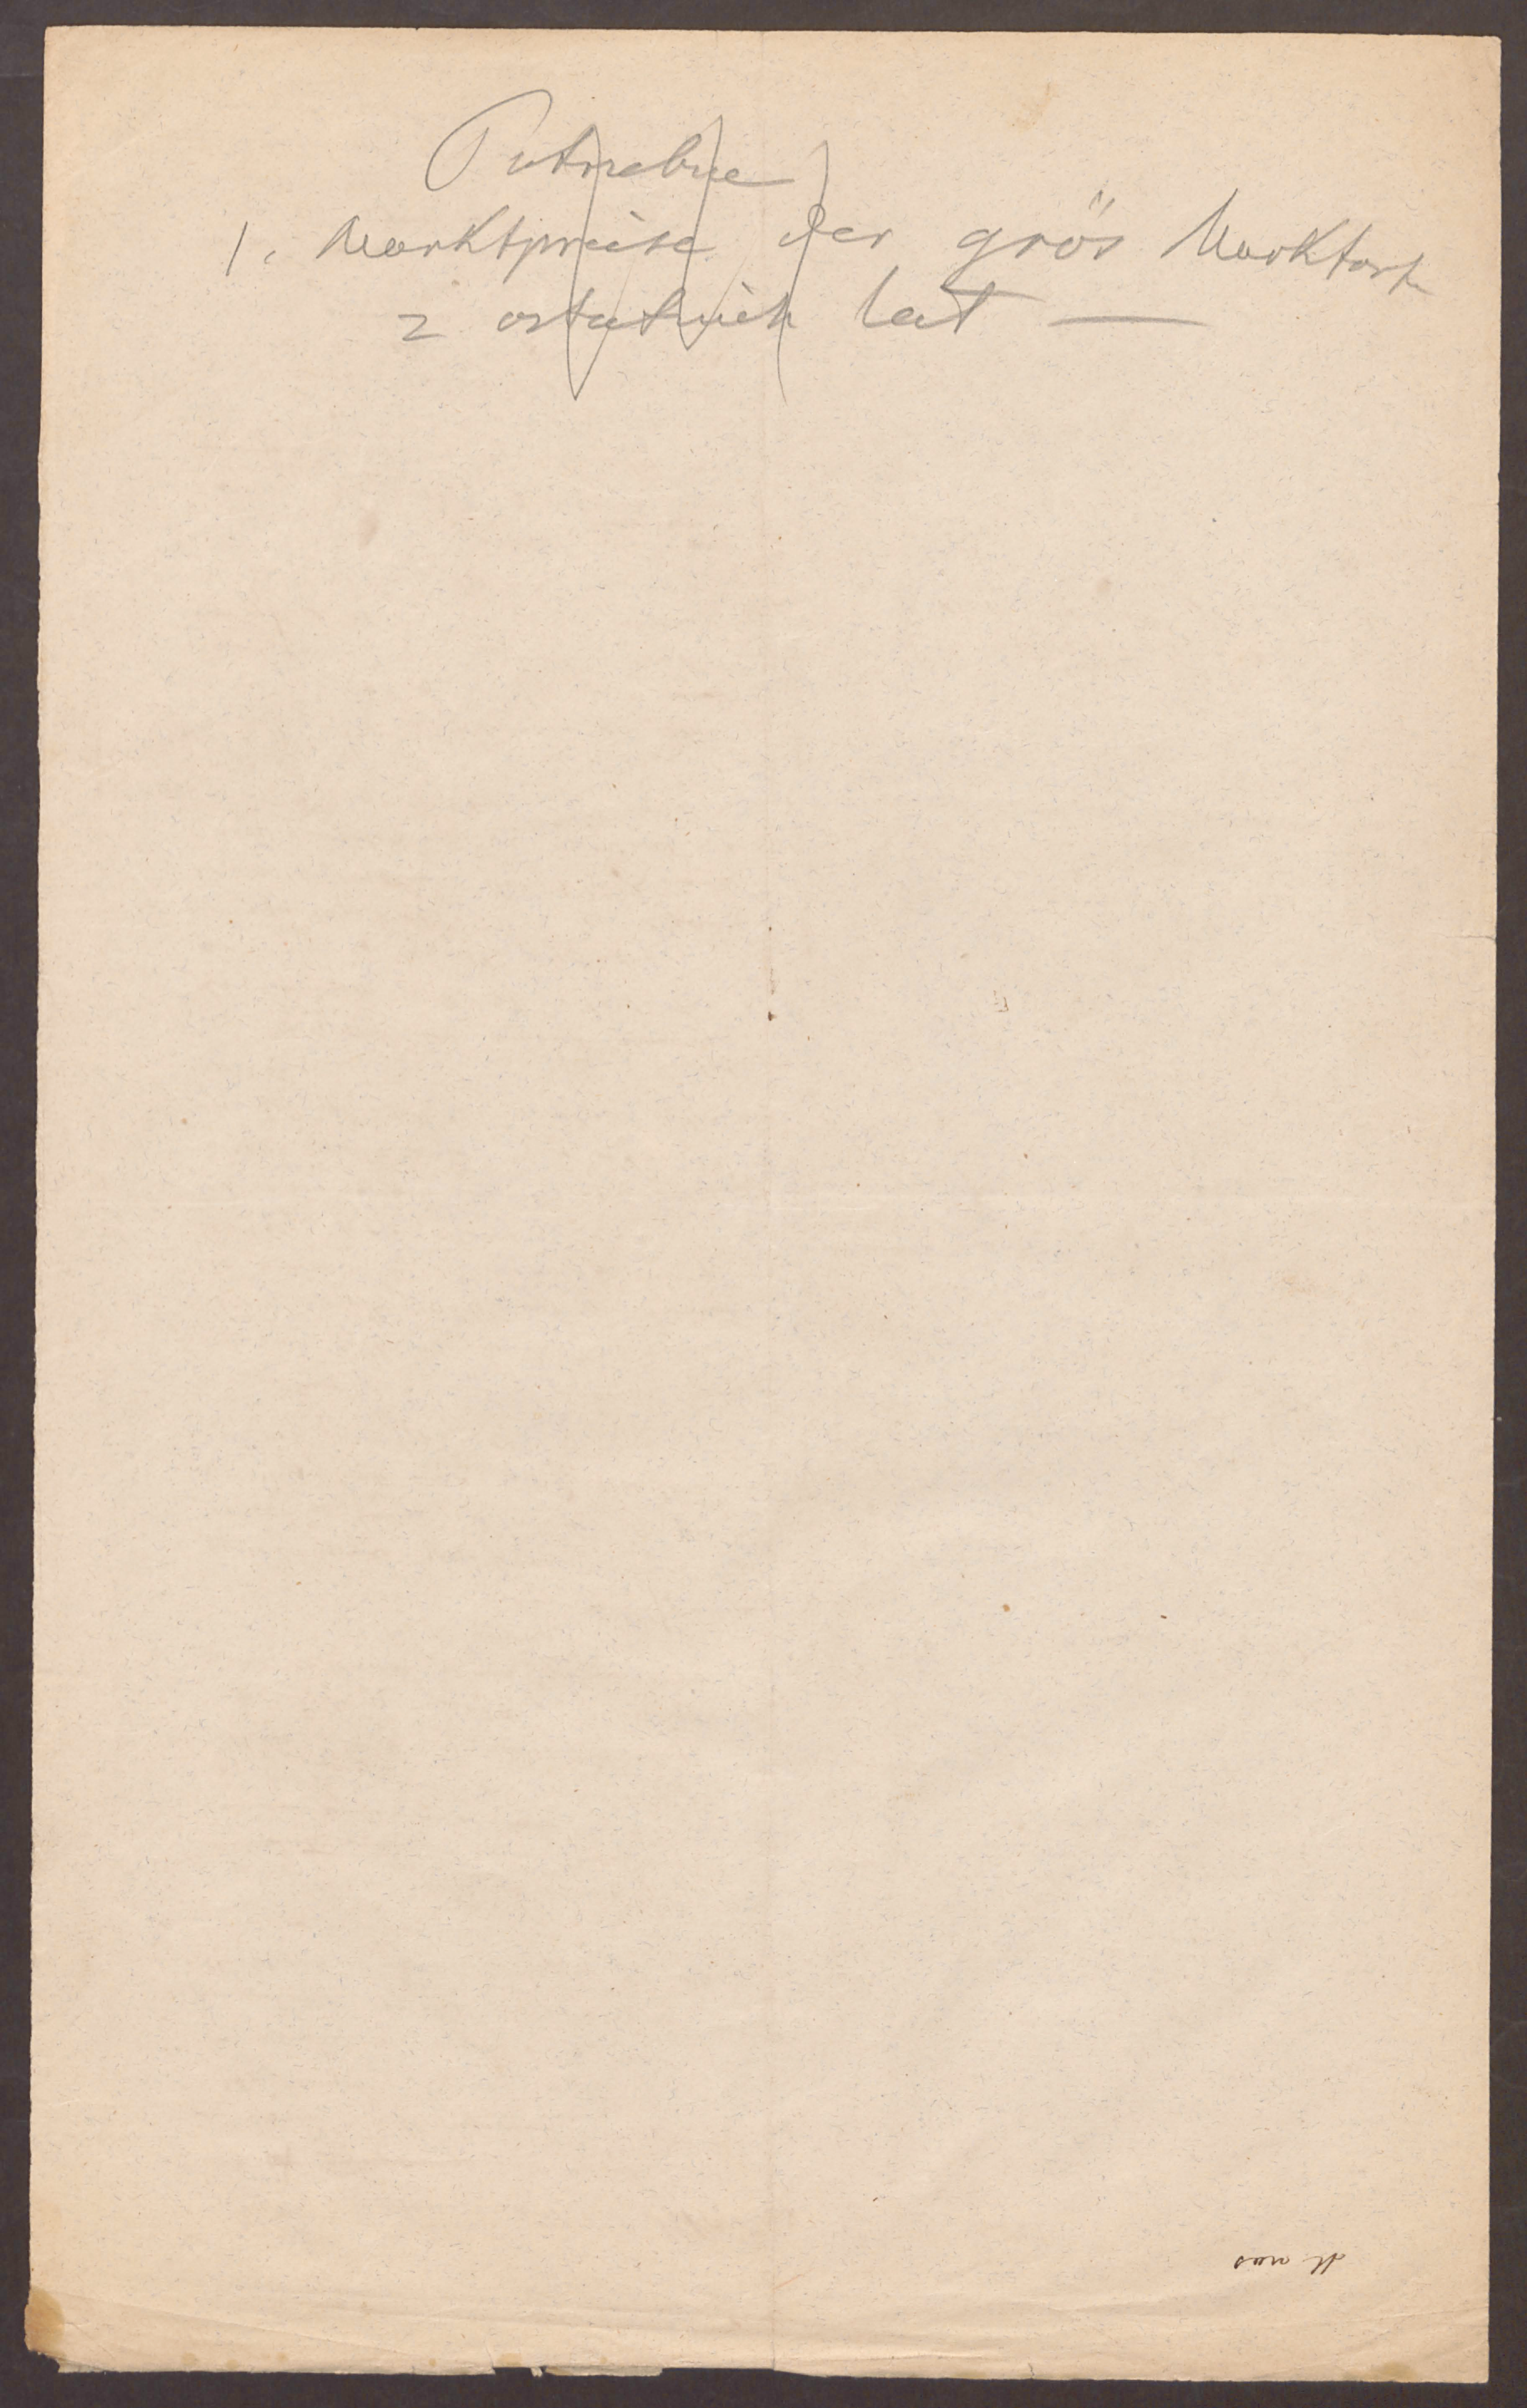 Potrzebne
1. Marktpreise der grös Marktorte
z ostatnich lat —